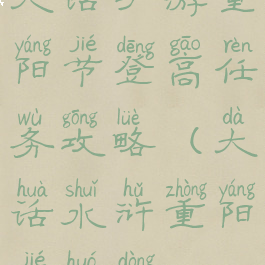 大话手游重
yáng jié dēng gāo rèn
阳节登高任
wù gōng lüè dà
务攻略（大
huà shuǐ hǔ zhòng yáng
话水浒重阳
jié huó dòng